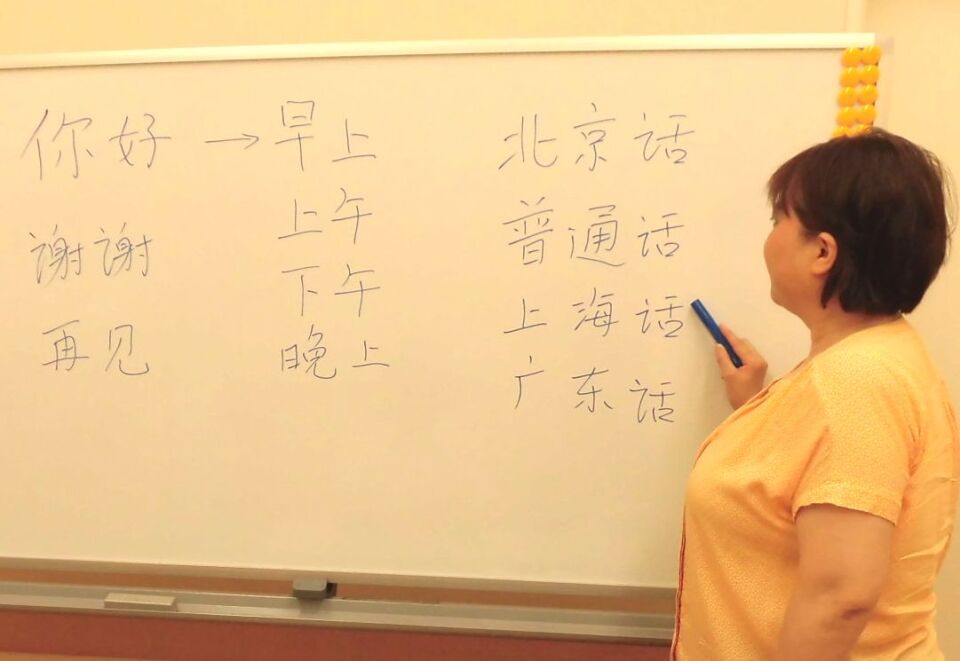 你好 → 早上
上午
下午
晚上
谢谢
再见
北京话
普通话
上海话
广东话